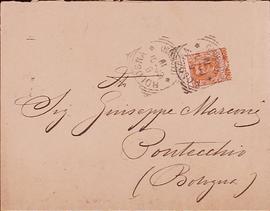 BOLOGNA
Al
Sig Giuseppe Marconi
Pontecchio
(Bologna)